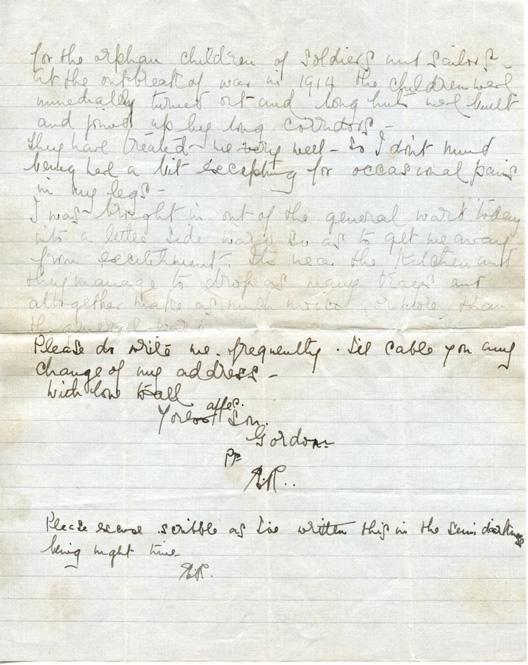 for the orphan children of soldiers and sailors -
at the outbreak of war in 1914 the children were
immediately turned out and long huts were built
and joined up by long corridors -
They have treated me very well - so I don't mind
being bed a bit excepting for occasional pains
in my legs -
I was brought in out of the general ward today
into a little side ward so as to get me away
from excitement. It's near the kitchen and
they manage to drop as many trays and
altogether make as much noise more than
the general ward
Please do write me frequently. I'll cable you any
change of my address -
With love to all
Your affec. Son.
Gordon
Pr
A.R..
Please excuse scribble as I've written this in the semi darkness
being night time
A.R.